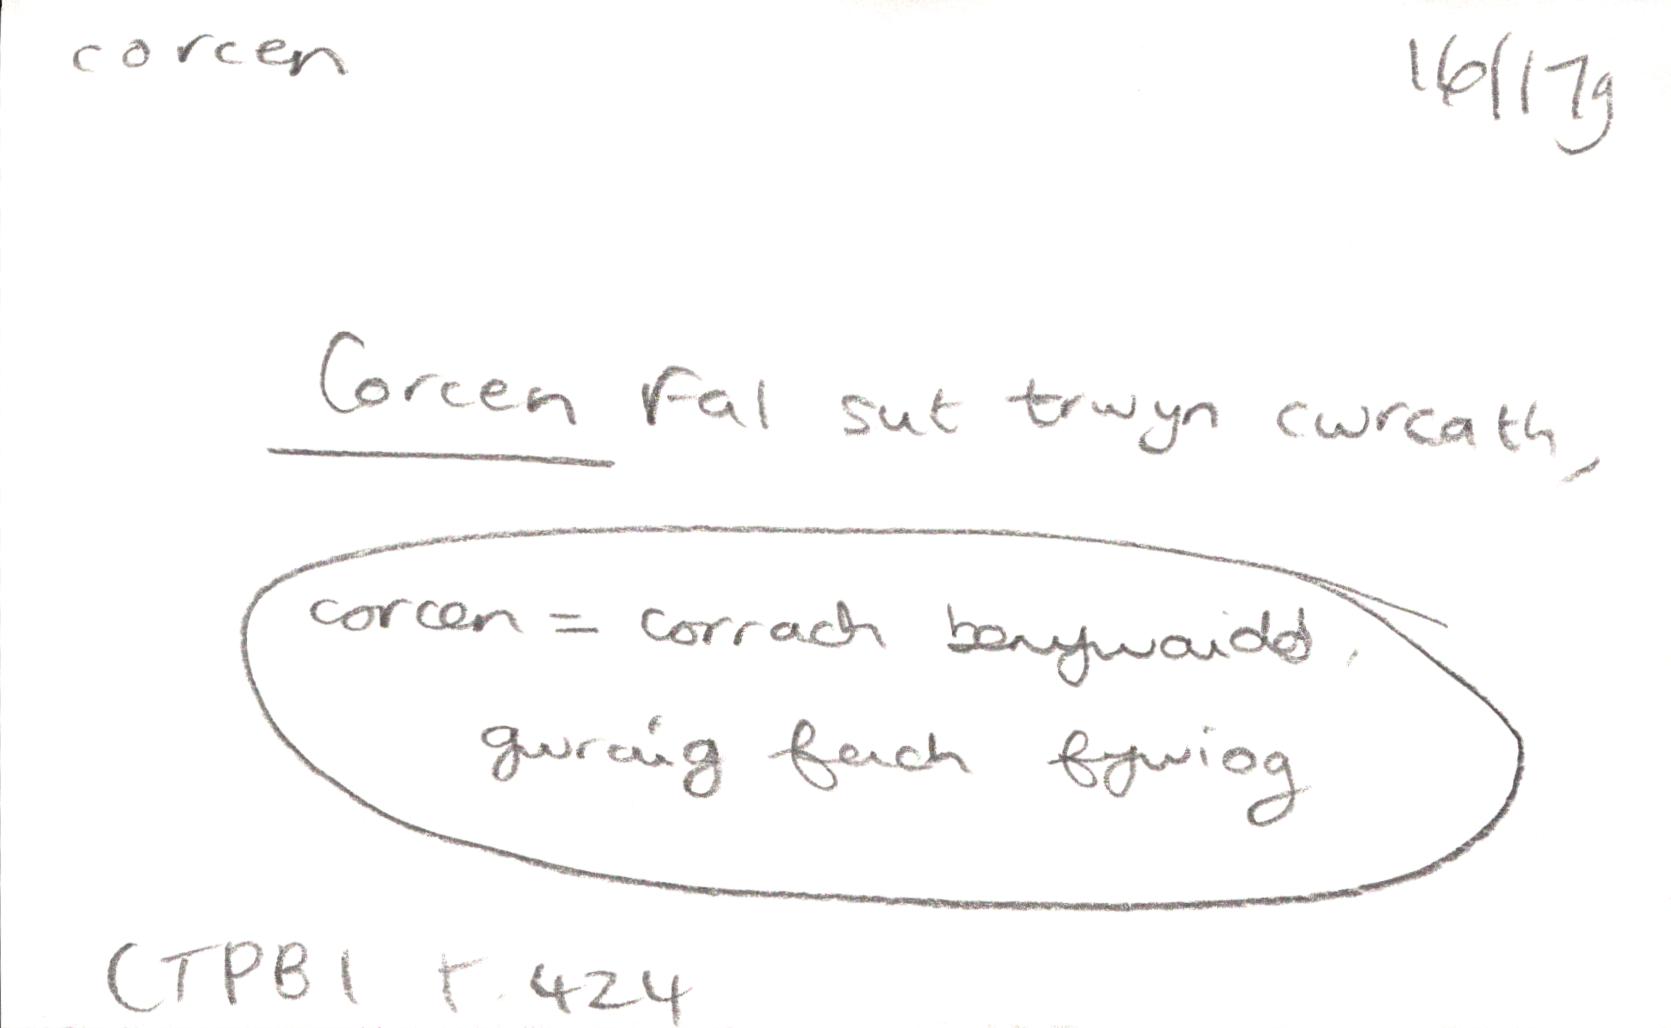 corcen 16/17g
Corcen fal sut trwyn cwrcath,
corcen = corrach benywaidd.
gwraig fach fywiog
CTPB1 t. 424